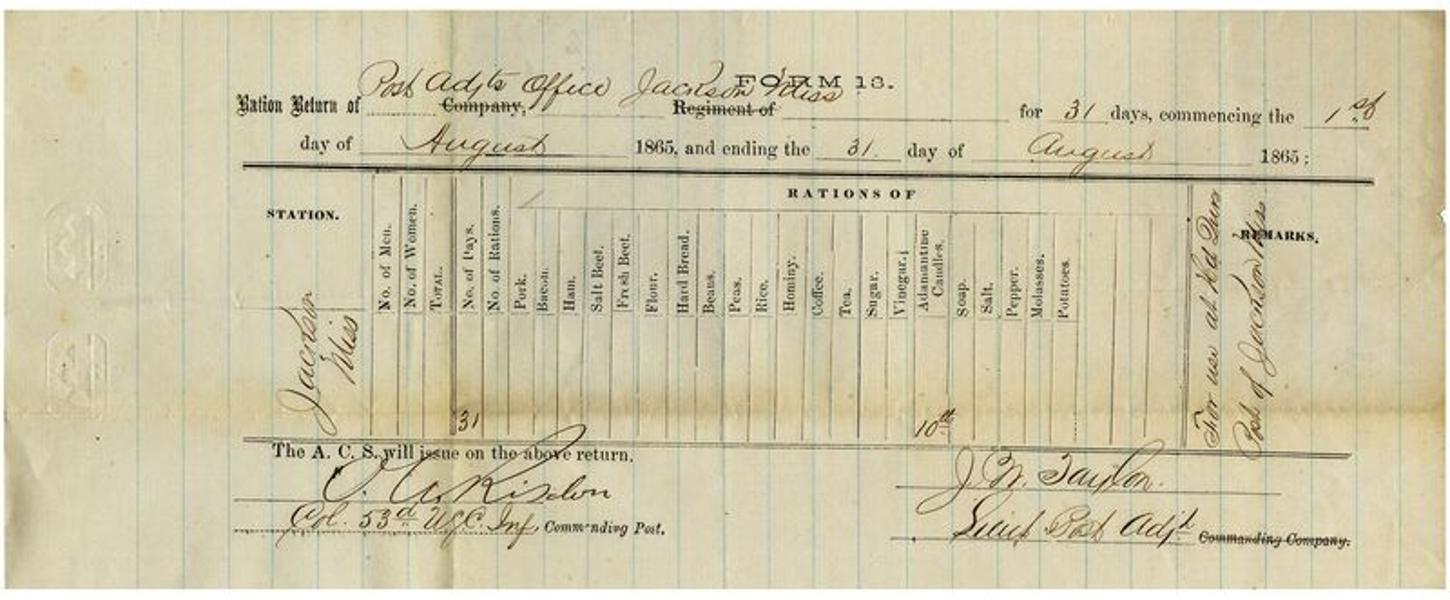 FORM 13.
Post Adjts Office Jackson Miss
Ration Return of Company, Regiment of for 31 days, commencing the 1st
day of August 1865, and ending the 31. day of August 1865;
RATIONS OF
STATION.
No. of Men.
No. of Women.
TOTAL.
No. of Days.
No. of Rations.
Pork.
Bacon.
Ham.
Salt Beef.
Fresh Beef.
Flour.
Hard Bread.
Beans.
Peas.
Rice.
Hominy.
Coffee.
Tea.
Sugar.
Vinegar.
Adamantine Candles.
Soap.
Salt.
Pepper.
Molasses.
Potatoes.
REMARKS.
Jackson
Miss
31
10 lb
For use at Hd Qurs
Post of Jackson Miss
The A. C. S. will issue on the above return.
O. A. Risdon
Col. 53d U.S.C. Inf Commanding Post.
J. W. Taylor.
Lieut Post Adjt Commanding Company.